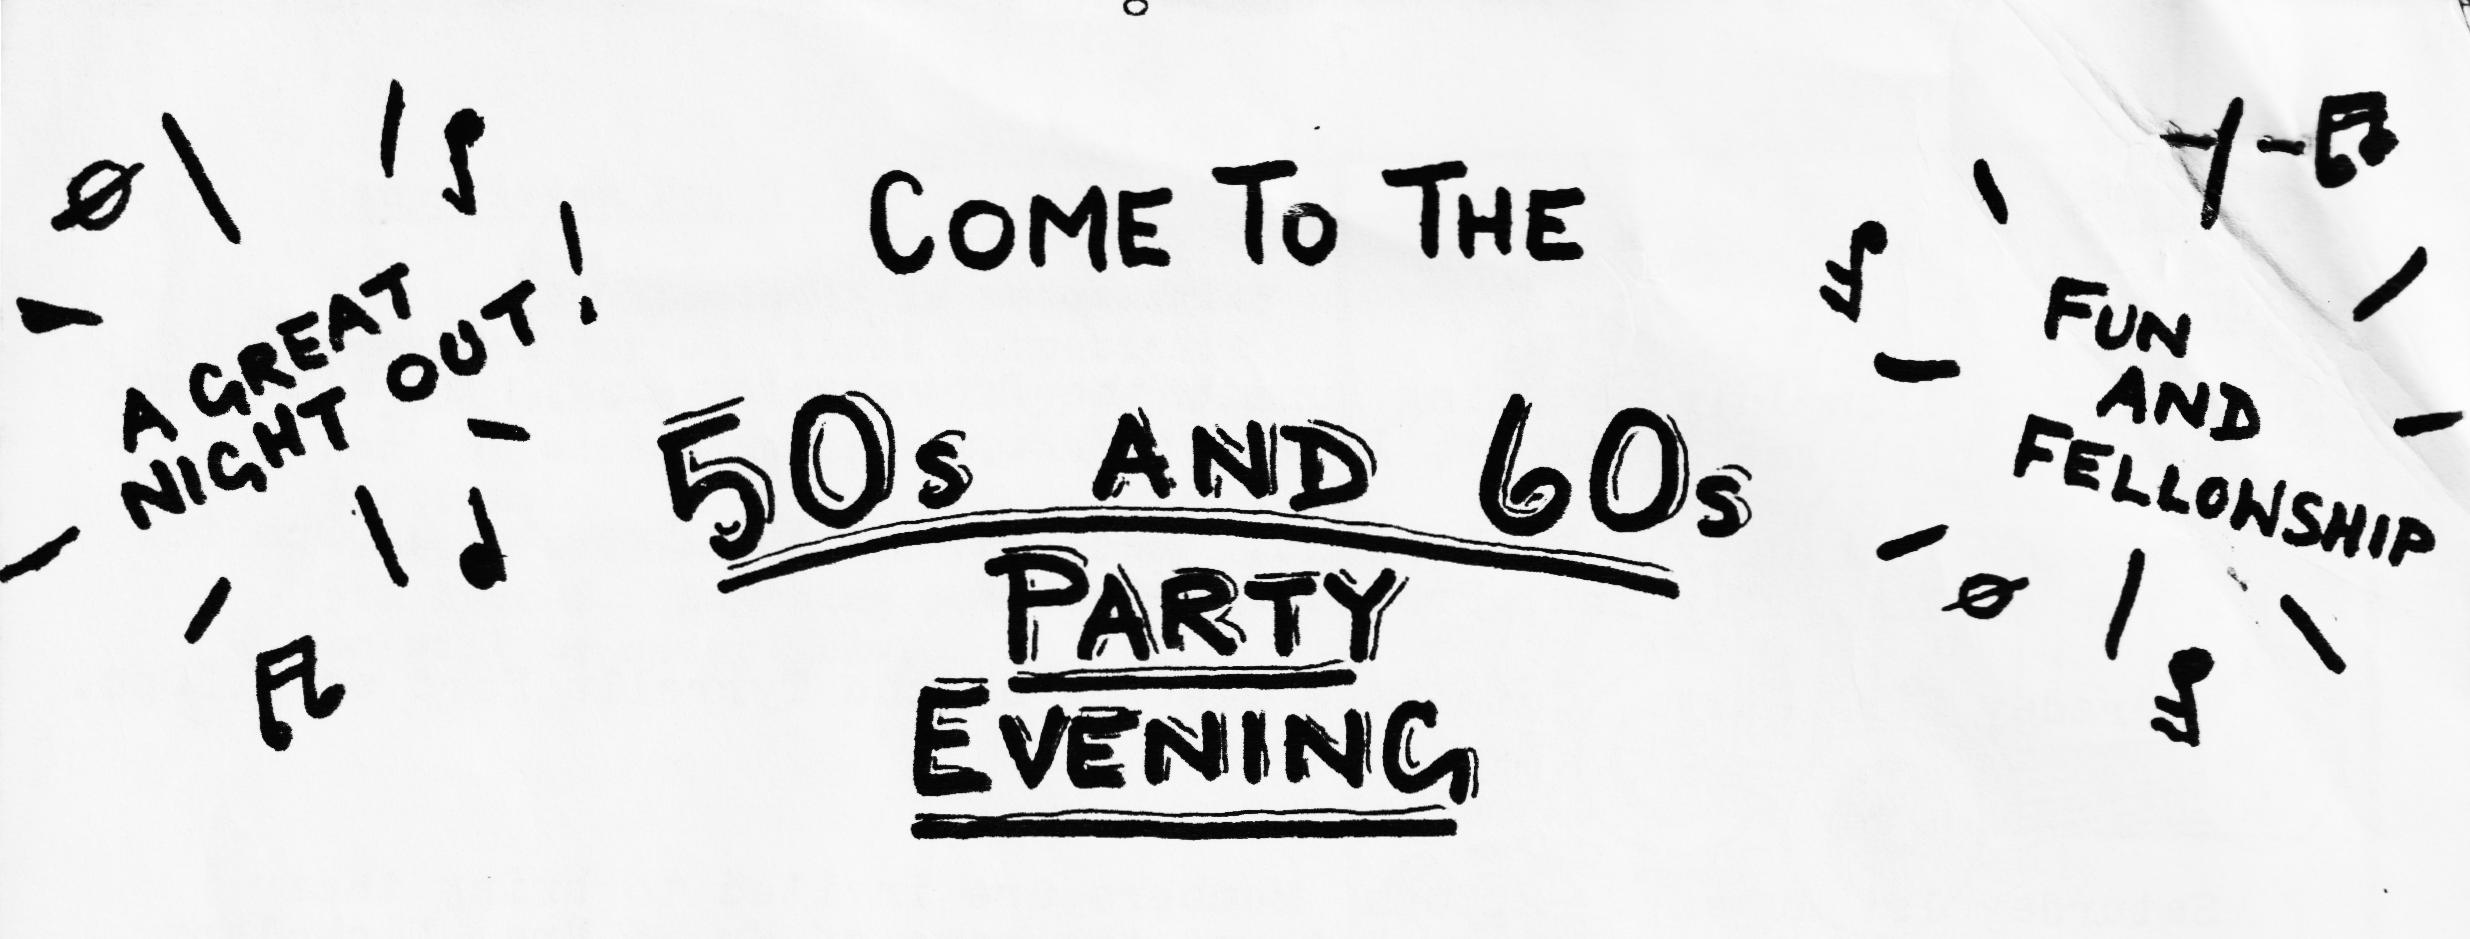 A GREAT
NIGHT OUT!
COME TO THE
50s AND 60s
PARTY
EVENING
FUN
AND
FELLOWSHIP